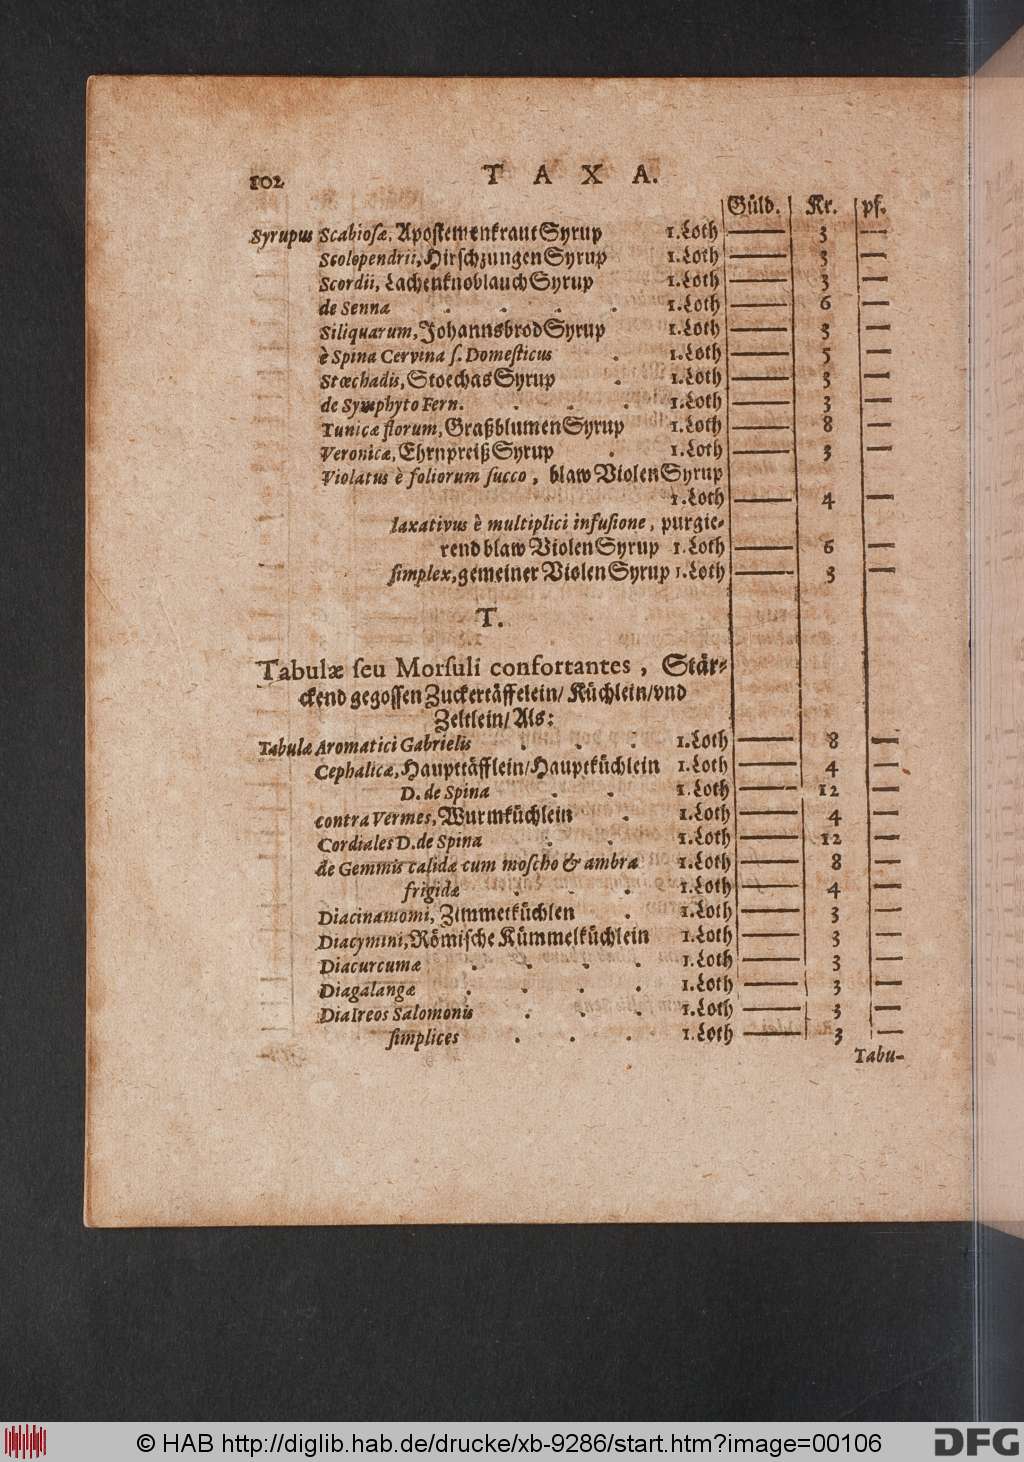 102 T A X A.
Güld. Kr. pf.
Syrupus Scabiosæ, Apostemenkraut Syrup 1. Loth — 3 —
Scolopendrii, Hirschzungen Syrup 1. Loth — 3 —
Scordii, Lachenknoblauch Syrup 1. Loth — 3 —
de Senna . . . . 1. Loth — 6 —
Siliquarum, Johannsbrod Syrup 1. Loth — 3 —
è Spina Cervina ſ. Domeſticus . 1. Loth — 5 —
Stœchadis, Stoechas Syrup . 1. Loth — 3 —
de Symphyto Fern. . . . 1. Loth — 3 —
Tunicæ florum, Graßblumen Syrup 1. Loth — 8 —
Veronicæ, Ehrnpreiß Syrup . 1. Loth — 3 —
Violatus è foliorum ſucco, blaw Violen Syrup
1. Loth — 4 —
laxativus è multiplici infuſione, purgie-
rend blaw Violen Syrup 1. Loth — 6 —
ſimplex, gemeiner Violen Syrup 1. Loth — 3 —
T.
Tabulæ ſeu Morſuli confortantes, Stär-
ckend gegoſſen Zuckertäffelein/ Küchlein/ vnd
Zeltlein/ Als:
Tabulæ Aromatici Gabrielis . . . 1. Loth — 8 —
Cephalicæ, Haupttäfflein/ Hauptküchlein 1. Loth — 4 —
D. de Spina . . 1. Loth — 12 —
contra Vermes, Wurmküchlein . 1. Loth — 4 —
Cordiales D. de Spina . . 1. Loth — 12 —
de Gemmis calidæ cum moſcho & ambra 1. Loth — 8 —
frigidæ . . . 1. Loth — 4 —
Diacinamomi, Zimmetküchlen . 1. Loth — 3 —
Diacymini, Römische Kümmelküchlein 1. Loth — 3 —
Diacurcumæ . . . . 1. Loth — 3 —
Diagalangæ . . . . 1. Loth — 3 —
Dia Ireos Salomonis . . . 1. Loth — 3 —
ſimplices . . . 1. Loth — 3 —
Tabu-
© HAB http://diglib.hab.de/drucke/xb-9286/start.htm?image=00106
DFG